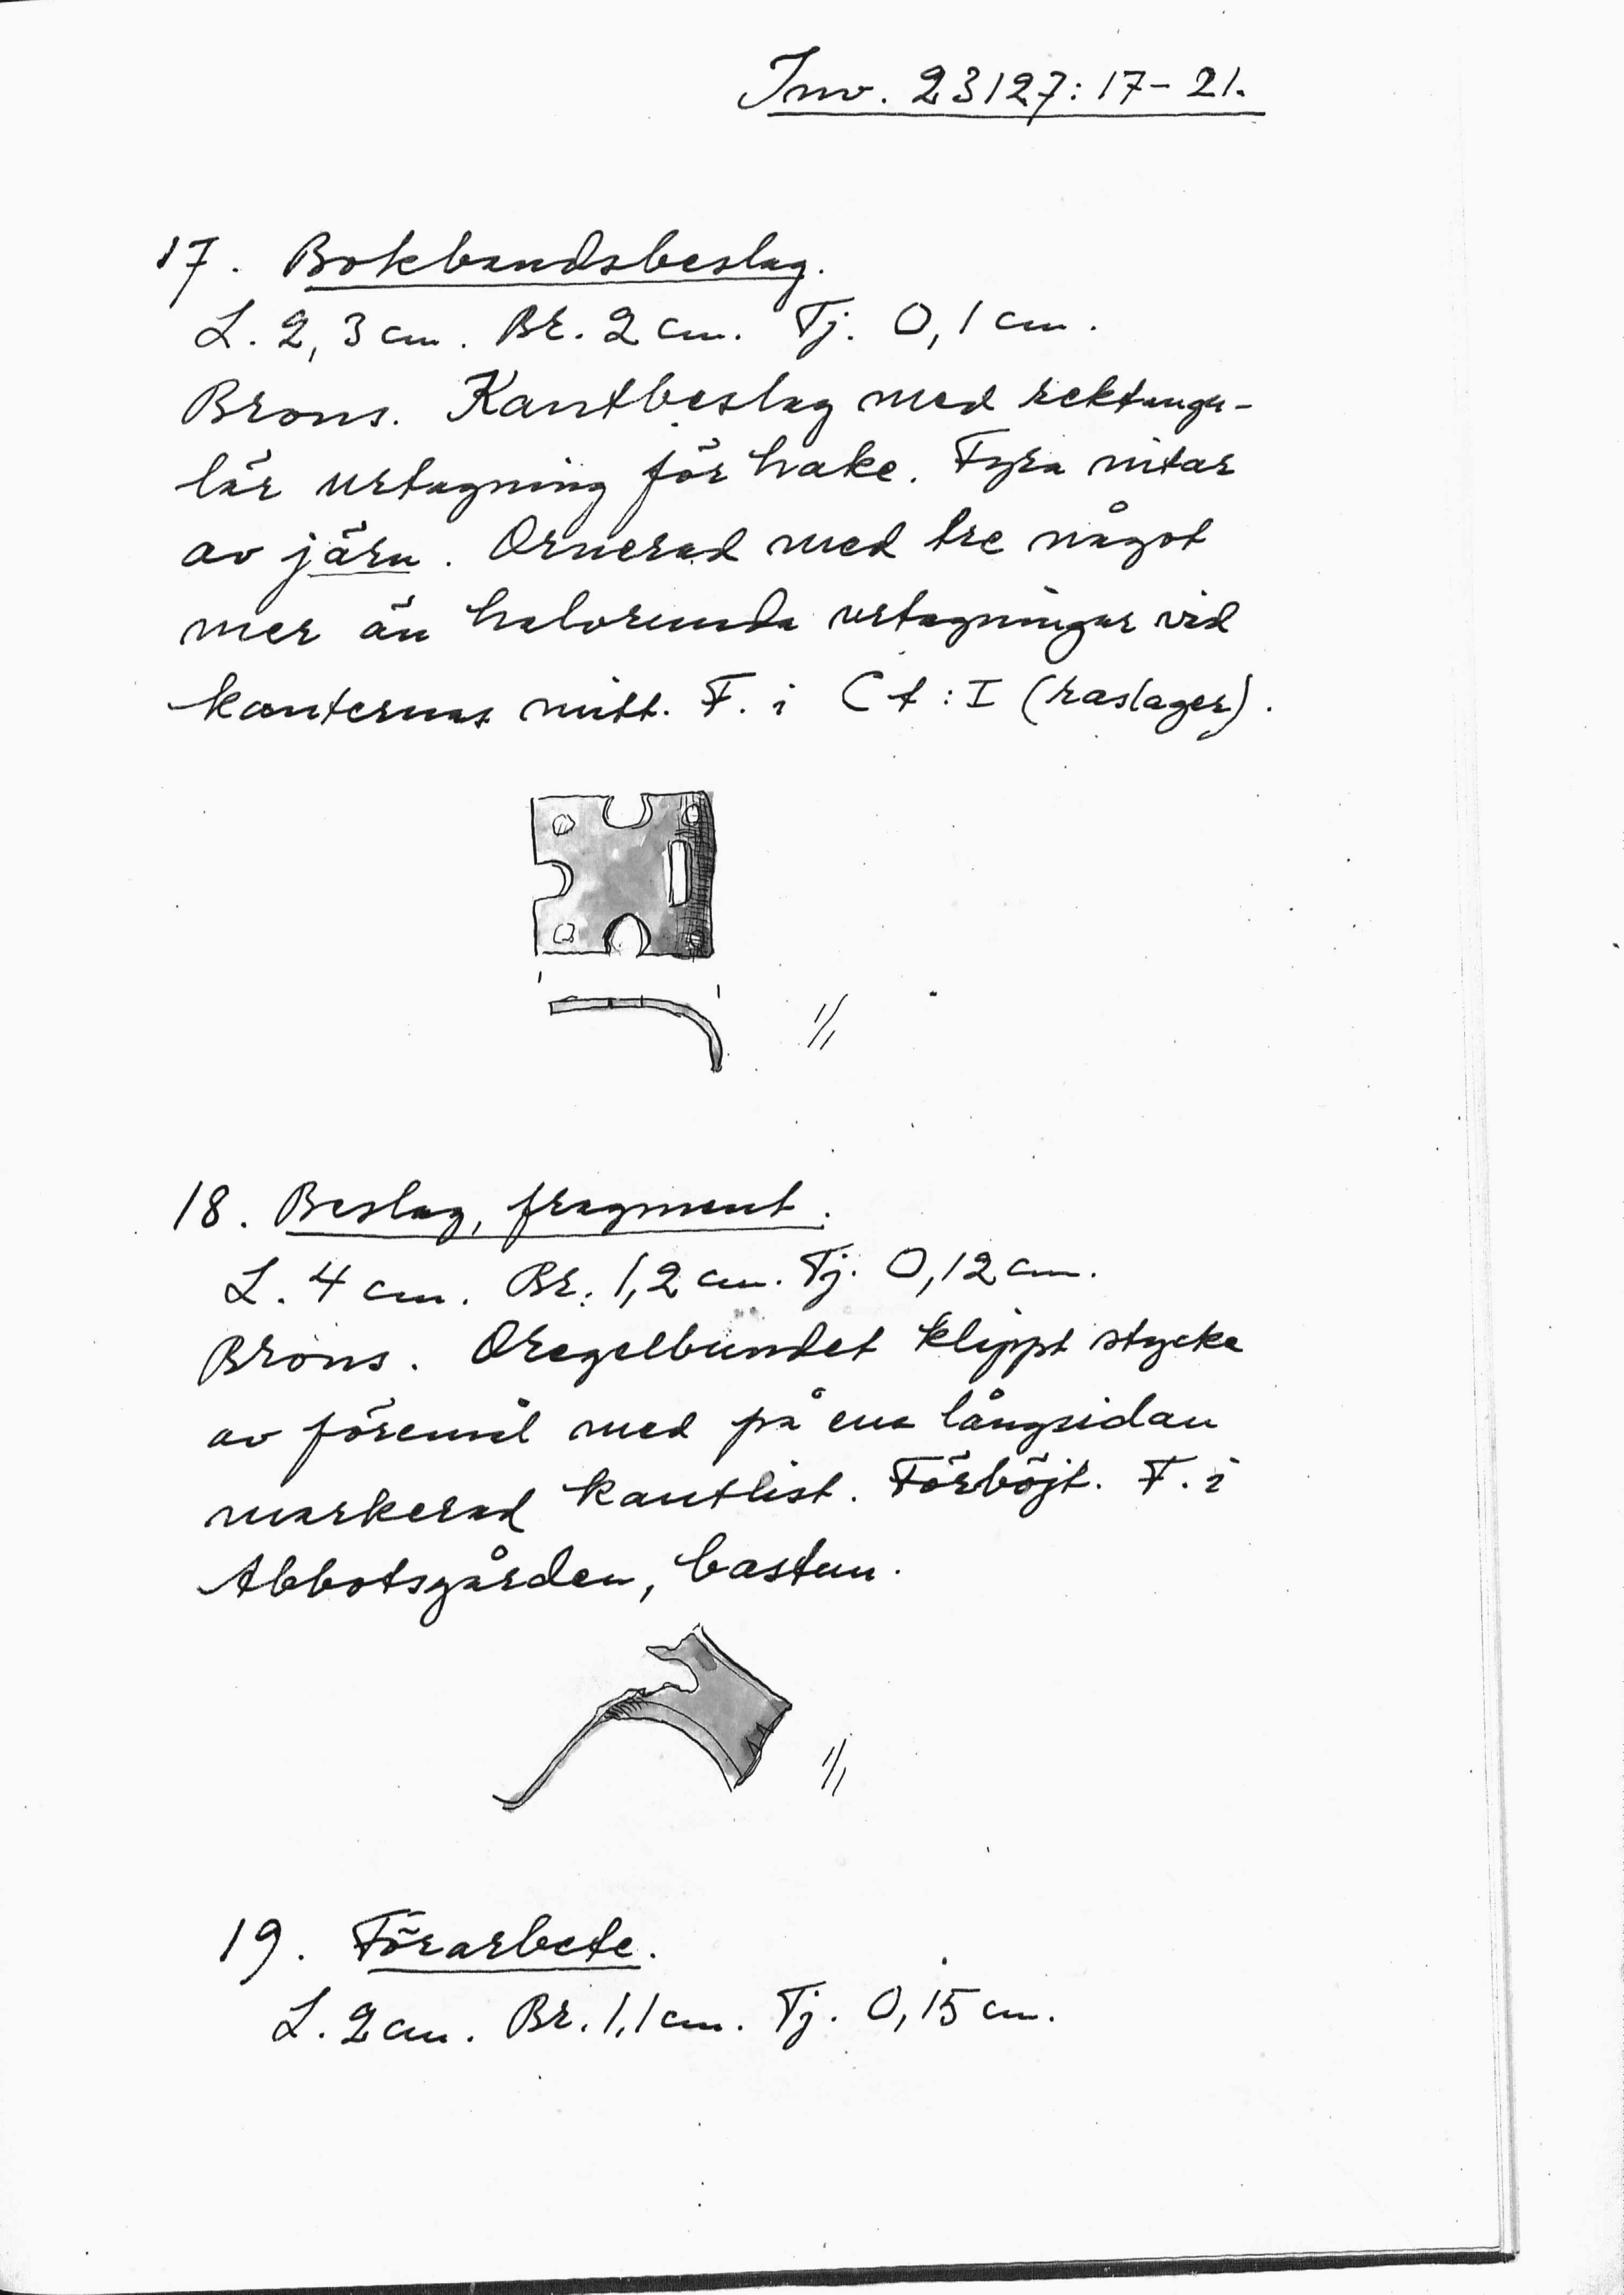 Inv. 23127:17-21.
17. Bokbandsbeslag.
L. 2,3 cm. Br. 2 cm. Tj. 0,1 cm.
Brons. Kantbeslag med rektangu-
lär urtagning för hake. Fyra nitar
av järn. Ornerad med tre något
mer än halvrunda urtagningar vid
kanternas mitt. F. i Ct:I (raslager).
1/1
18. Beslag, fragment.
L. 4 cm. Br. 1,2 cm. Tj. 0,12 cm.
Brons. Oregelbundet klippt stycke
av föremål med på ena långsidan
markerad kantlist. Förböjt. F. i
Abbotsgården, bastun.
1/1
19. Förarbete.
L. 2 cm. Br. 1,1 cm. Tj. 0,15 cm.